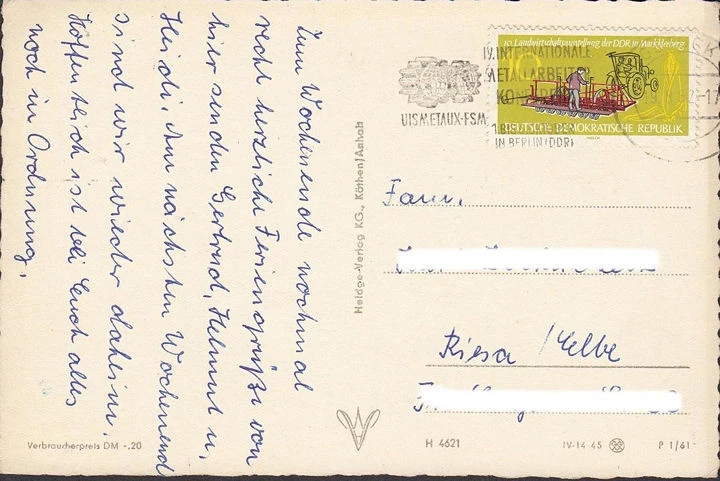 Zum Wochenende nochmal
recht herzliche Feriengrüße von
hier senden Gertrud, Helmut u,
Heidi, Am nächsten Wochenend
sind wir wieder daheim.
Hoffentlich ist bei Euch alles
noch in Ordnung.
Heldge-Verlag KG., Köthen/Anhalt
UISMETAUX-FSM
IV. INTERNATIONALE
METALLARBEITER
IN BERLIN/DDR
10. Landwirtschaftsausstellung der DDR in Markkleeberg
DEUTSCHE DEMOKRATISCHE REPUBLIK
Fam.
Riesa / Elbe
Verbraucherpreis DM -,20
H 4621
IV-14-45
P 1/61